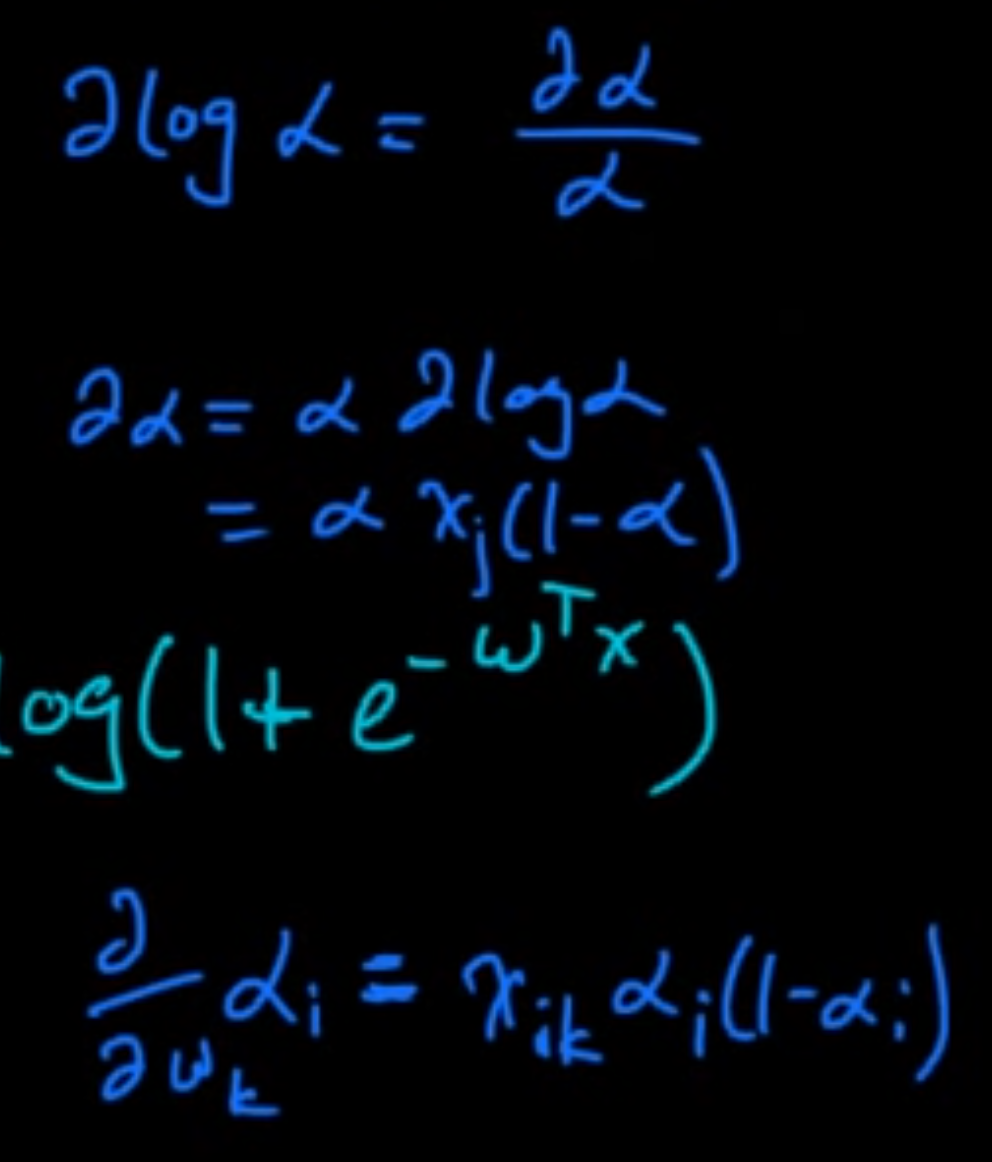 ∂ log α = ∂α / α
∂α = α ∂ log α
= α x_j (1 - α)
log(1 + e^{-ω^T x})
∂/∂ω_k α_i = x_{ik} α_i (1 - α_i)